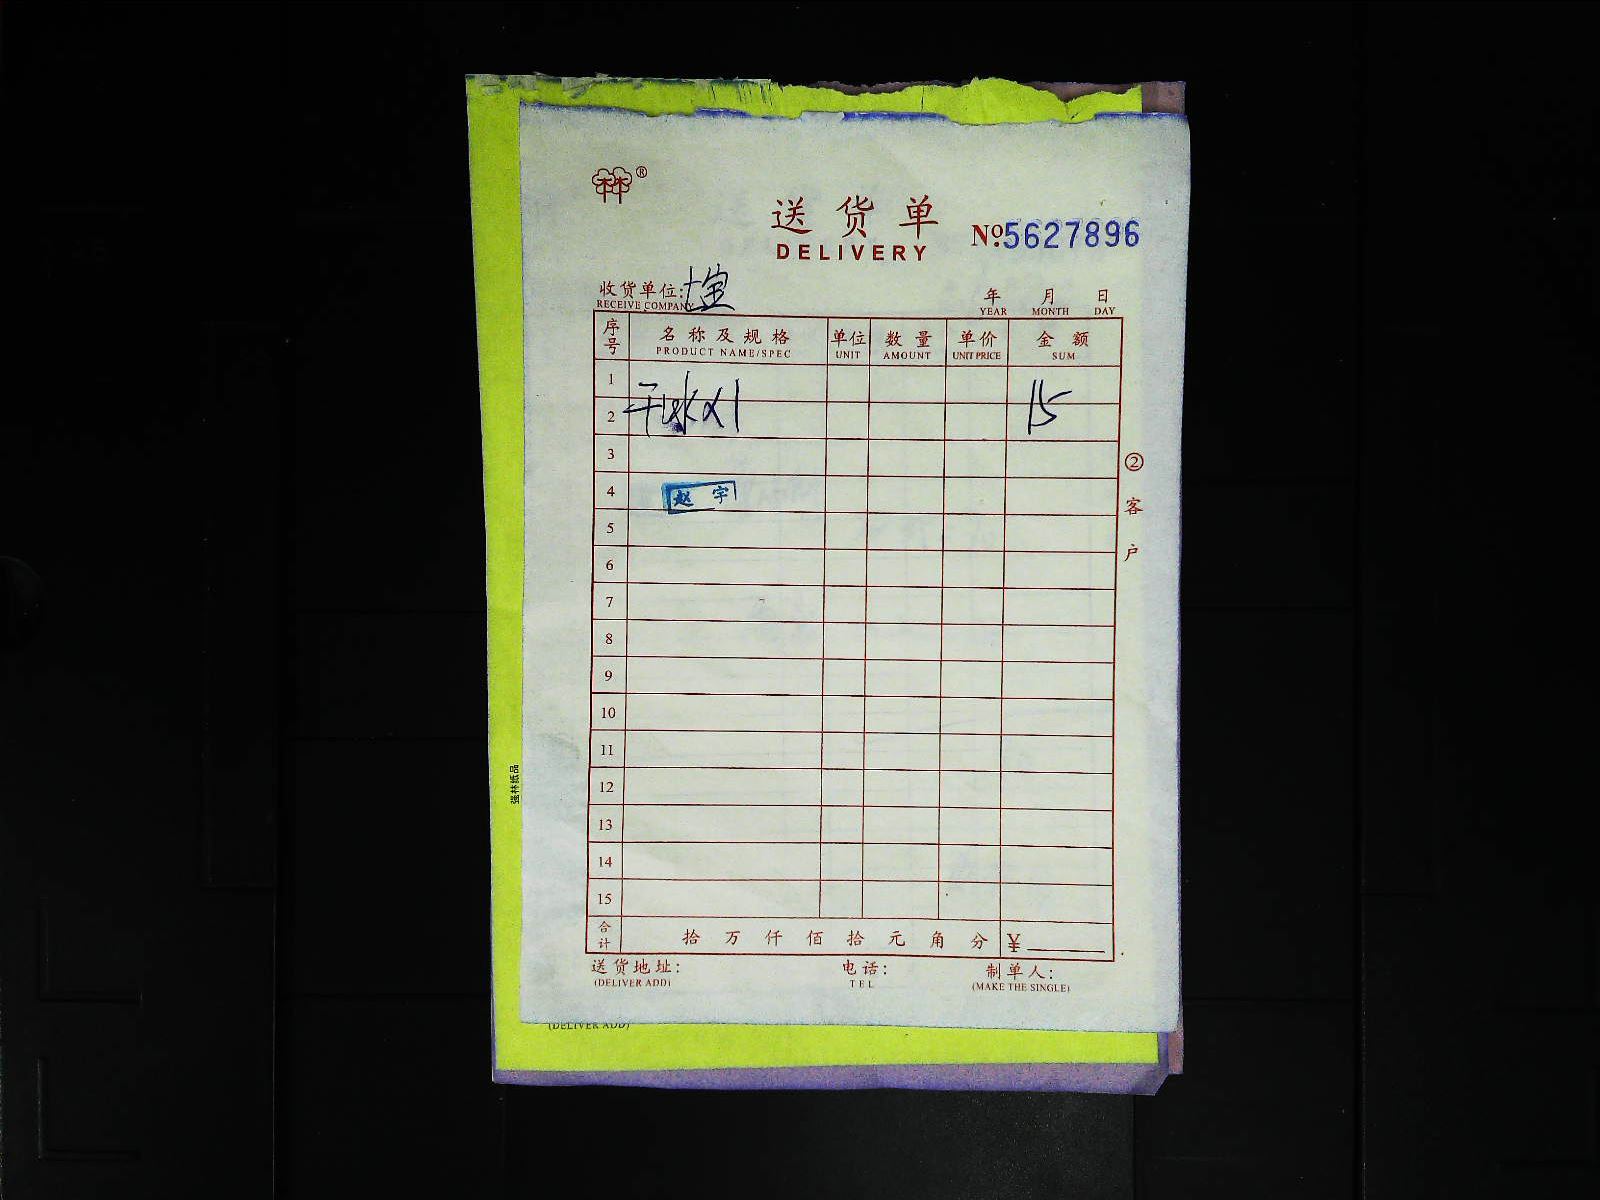 ®
送货单
DELIVERY
Nº.5627896
收货单位:
RECEIVE COMPANY
年 月 日
YEAR MONTH DAY
序号 名称及规格 单位 数量 单价 金额
PRODUCT NAME/SPEC UNIT AMOUNT UNIT PRICE SUM
1
2 干冰x1 15
3
4 赵宇
5
6
7
8
9
10
11
12
13
14
15
合计 拾 万 仟 佰 拾 元 角 分 ¥
送货地址: 电话: 制单人:
(DELIVER ADD) TEL (MAKE THE SINGLE)
② 客户
强林纸品
(DELIVER ADD)